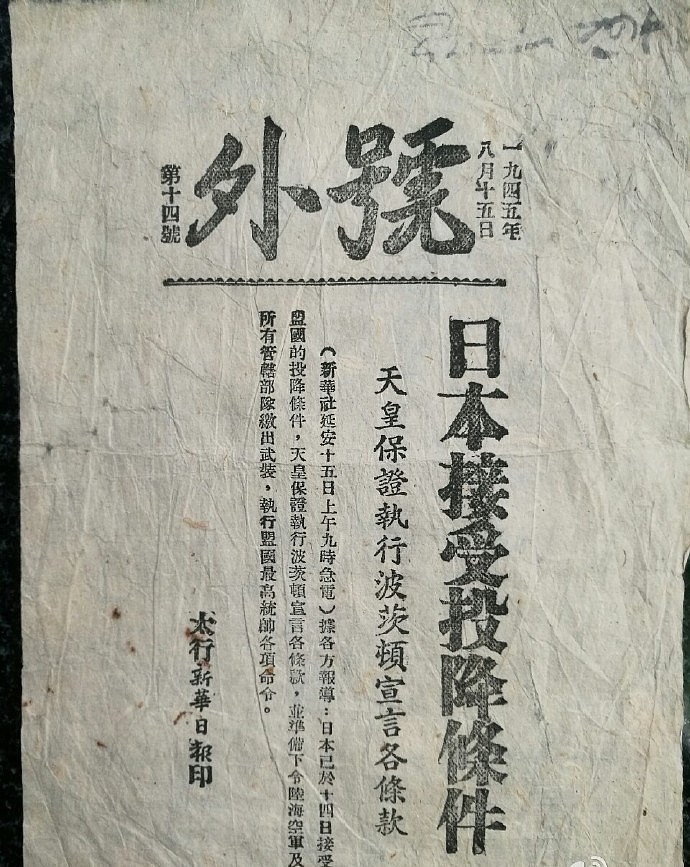 號外
一九四五年
八月十五日
第十四號
日本接受投降條件
天皇保證執行波茨頓宣言各條款
（新華社延安十五日上午九時急電）據各方報導：日本已於十四日接受
盟國的投降條件，天皇保證執行波茨頓宣言各條款，並準備下令陸海空軍及
所有管轄部隊繳出武裝，執行盟國最高統帥各項命令。
太行新華日報印